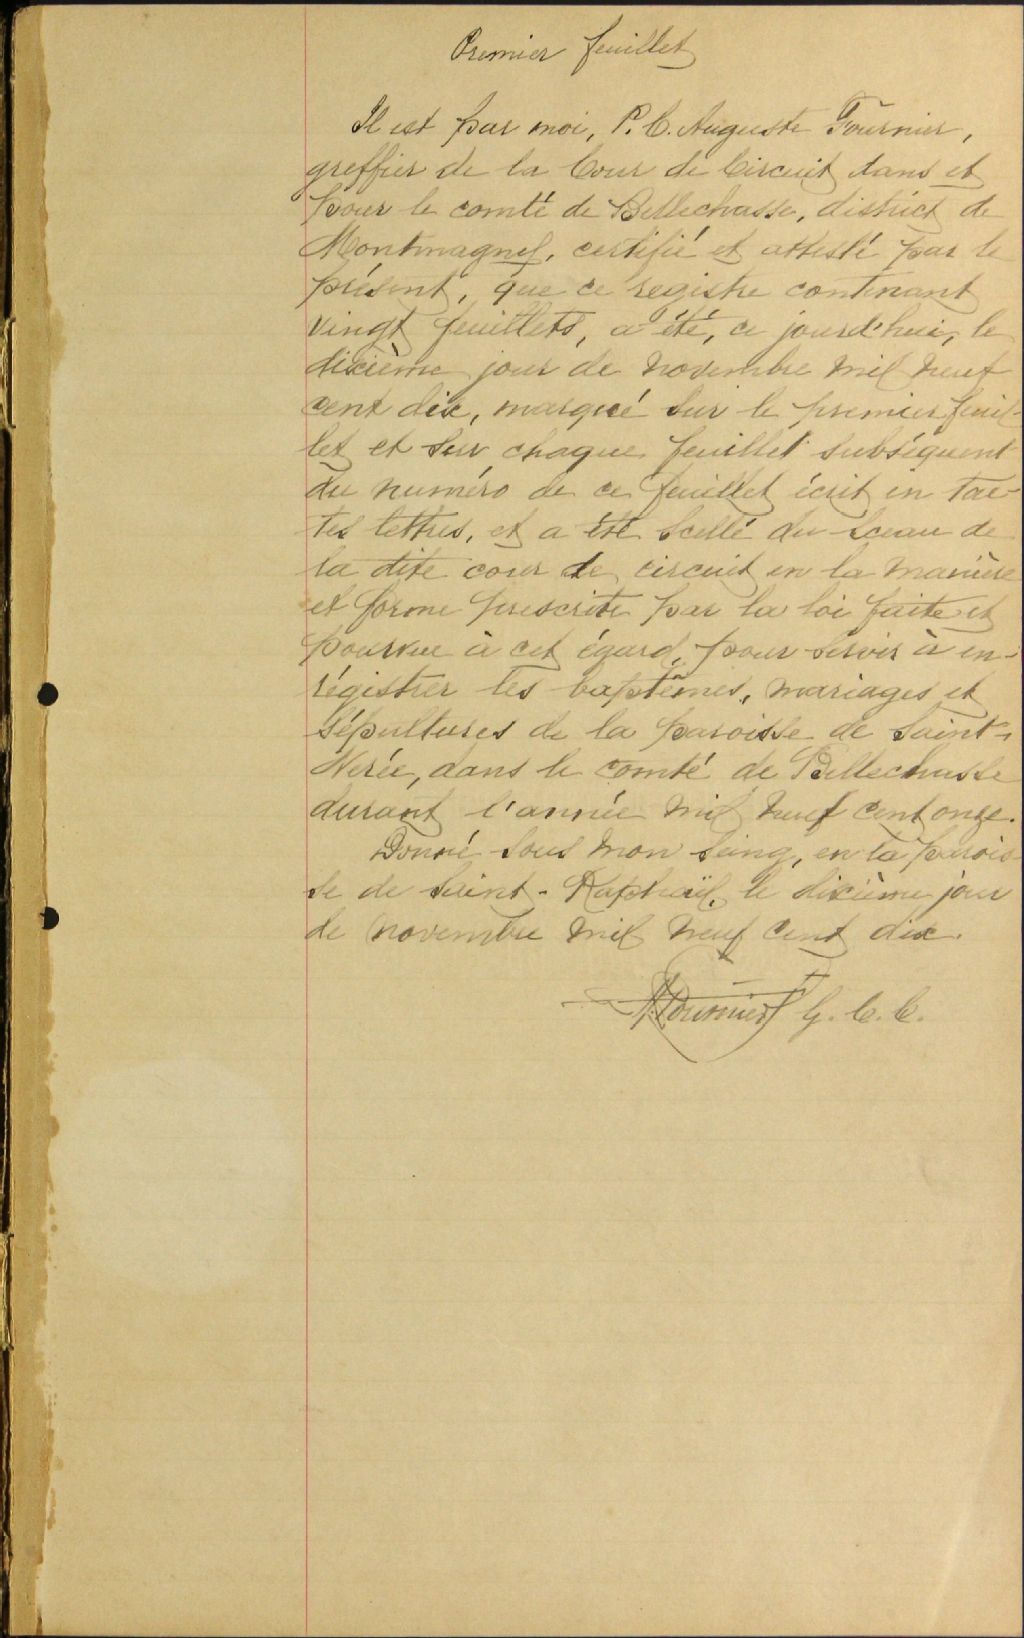 Premier feuillet
Il est par moi, P. C. Auguste Fournier,
greffier de la Cour de Circuit dans et
pour le comté de Bellechasse, district de
Montmagny, certifié et attesté par le
présent, que ce registre contenant
vingt feuillets, a été, ce jourd'hui, le
dixième jour de novembre mil neuf
cent dix, marqué sur le premier feuil-
let et sur chaque feuillet subséquent
du numéro de ce feuillet écrit en tou-
tes lettres, et a été scellé du sceau de
la dite cour de circuit en la manière
et forme prescrite par la loi faite et
pourvue à cet égard, pour servir à en-
régistrer les baptêmes, mariages et
sépultures de la paroisse de Saint-
Nerée, dans le comté de Bellechasse
durant l'année mil neuf cent onze.
Donné sous mon seing, en la parois-
se de Saint-Raphaël, le dixième jour
de novembre mil neuf cent dix.
A. Fournier G. C. C.